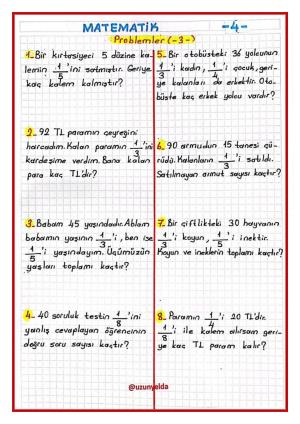 MATEMATİK -4-
Problemler (-3-)
1- Bir kırtasiyeci 5 düzine ka-
lemin 1/5'ini satmıştır. Geriye
kaç kalem kalmıştır?
2- 92 TL paramın çeyreğini
harcadım. Kalan paramın 1/3'ini
kardeşime verdim. Bana kalan
para kaç TL'dir?
3- Babam 45 yaşındadır. Ablam
babamın yaşının 1/3'i, ben ise
1/5'i yaşındayım. Üçümüzün
yaşları toplamı kaçtır?
4- 40 soruluk testin 1/8'ini
yanlış cevaplayan öğrencinin
doğru soru sayısı kaçtır?
5- Bir otobüsteki 36 yolcunun
1/3'i kadın, 1/4'i çocuk, geri-
ye kalanları da erkektir. Oto-
büste kaç erkek yolcu vardır?
6- 90 armudun 15 tanesi çü-
rüdü. Kalanların 1/3'i satıldı.
Satılmayan armut sayısı kaçtır?
7- Bir çiftlikteki 30 hayvanın
1/3'i koyun, 1/5'i inektir.
Koyun ve ineklerin toplamı kaçtır?
8- Paramın 1/4'i 20 TL'dir.
1/8'i ile kalem alırsam geri-
ye kaç TL param kalır?
@uzunyelda